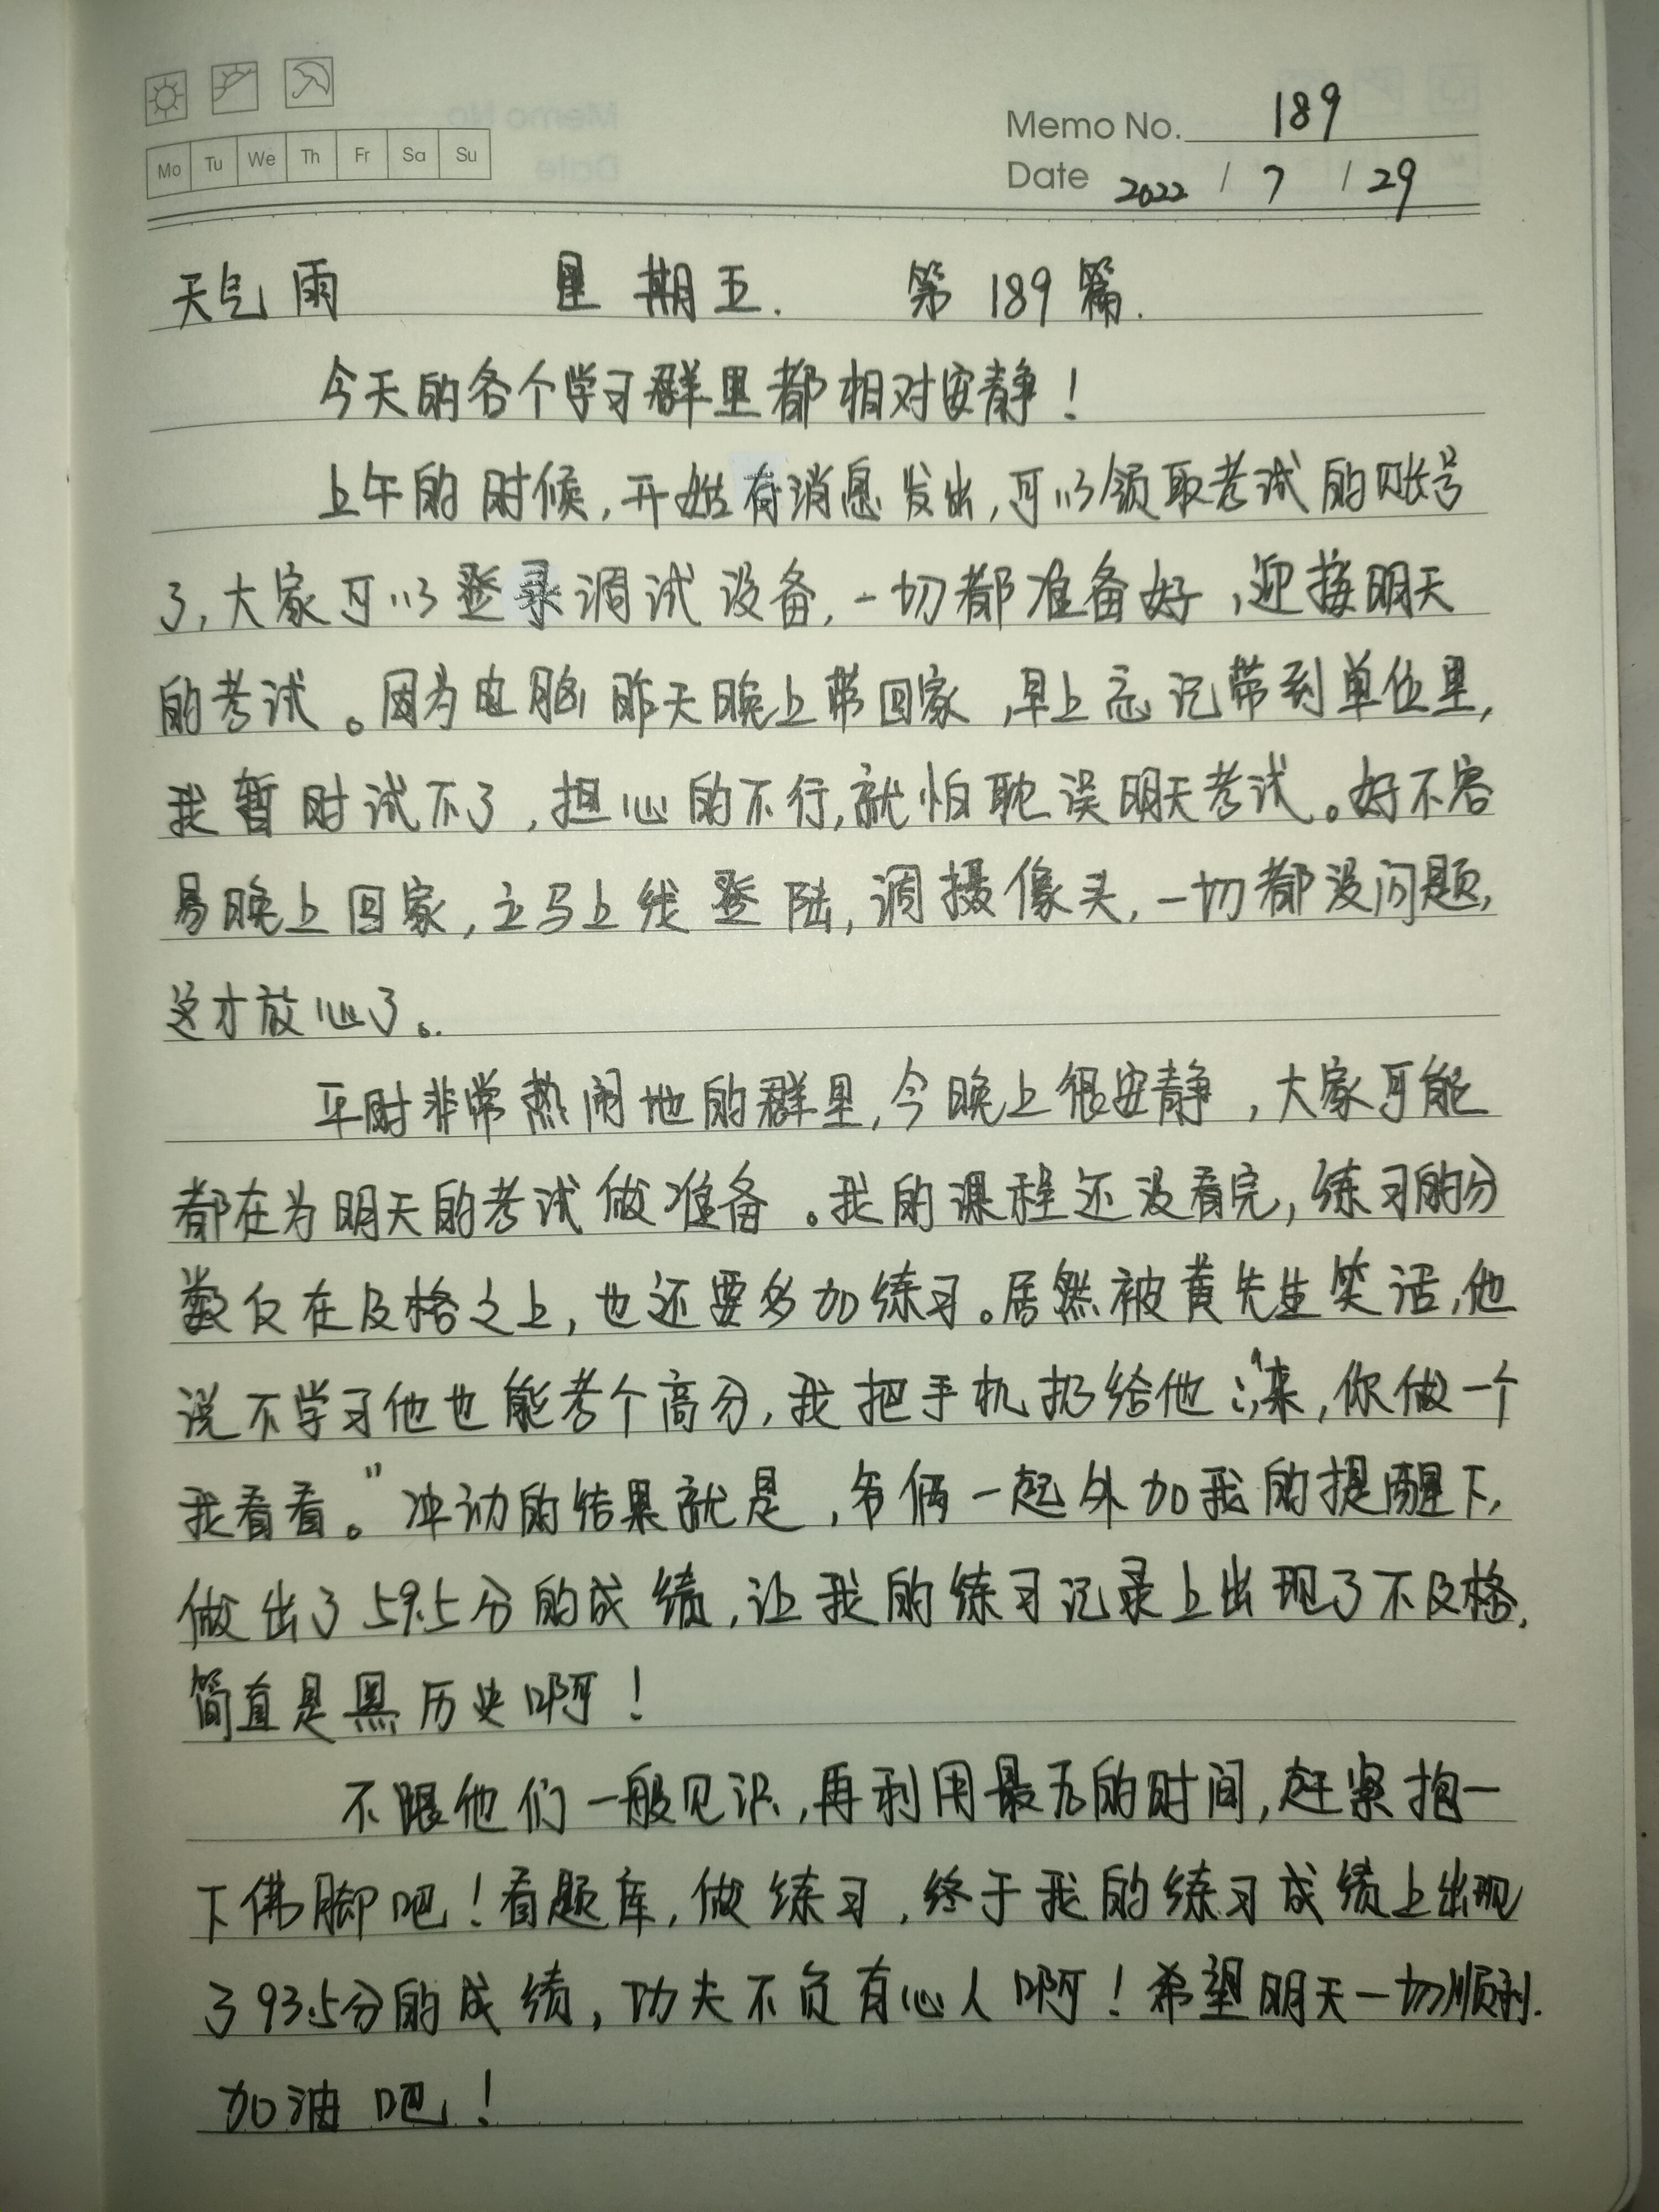 Memo No. 189
Mo Tu We Th Fr Sa Su
Date 2022 / 7 / 29
天气 雨 星期五. 第189篇.
今天的各个学习群里都相对安静！
上午的时候,开始有消息发出,可以领取考试的账号
了,大家可以登录调试设备,一切都准备好,迎接明天
的考试。因为电脑昨天晚上带回家,早上忘记带到单位里,
我暂时试不了,担心的不行,就怕耽误明天考试。好不容
易晚上回家,立马上线登陆,调摄像头,一切都没问题,
这才放心了。
平时非常热闹地的群里,今晚上很安静,大家可能
都在为明天的考试做准备。我的课程还没看完,练习的分
数仅在及格之上,也还要多加练习。居然被黄先生笑话,他
说不学习他也能考个高分,我把手机扔给他:“来,你做一个
我看看。”冲动的结果就是,爷俩一起外加我的提醒下,
做出了59.5分的成绩,让我的练习记录上出现了不及格,
简直是黑历史啊！
不跟他们一般见识,再利用最后的时间,赶紧抱一
下佛脚吧！看题库,做练习,终于我的练习成绩上出现
了93.5分的成绩,功夫不负有心人啊！希望明天一切顺利.
加油吧！